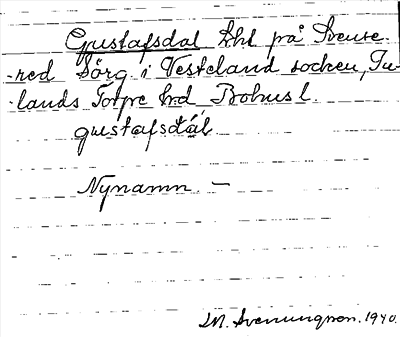 Gustafsdal lht på Svense-
red Sörg i Vesteland socken, In-
lands Torpe hrd Bohusl.
gustafsdál
Nynamn. –
M. Svenungsson. 1940.